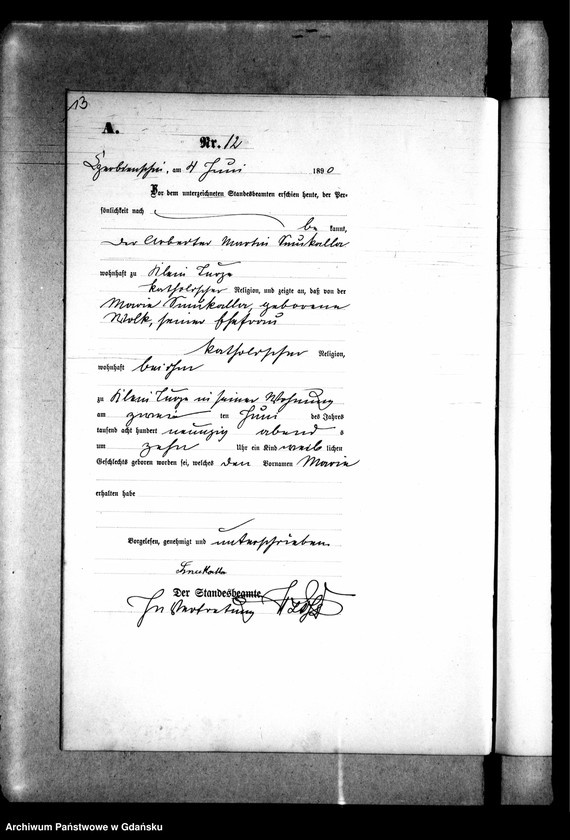 13
A.
Nr. 12
am 4 Juni 1890
Vor dem unterzeichneten Standesbeamten erschien heute, der Per-
sönlichkeit nach
be kannt,
der Arbeiter Martin Smukalla
wohnhaft zu Klein Turze
katholischer Religion, und zeigte an, daß von der
Marie Smukalla, geborene
Wolk, seiner Ehefrau
katholischer Religion,
wohnhaft bei ihm
zu Klein Turze in seiner Wohnung
am zwei ten Juni des Jahres
tausend acht hundert neunzig abend s
um zehn Uhr ein Kind weib lichen
Geschlechts geboren worden sei, welches den Vornamen Marie
erhalten habe
Vorgelesen, genehmigt und unterschrieben.
Smukalla
Der Standesbeamte
In Vertretung
Archiwum Państwowe w Gdańsku